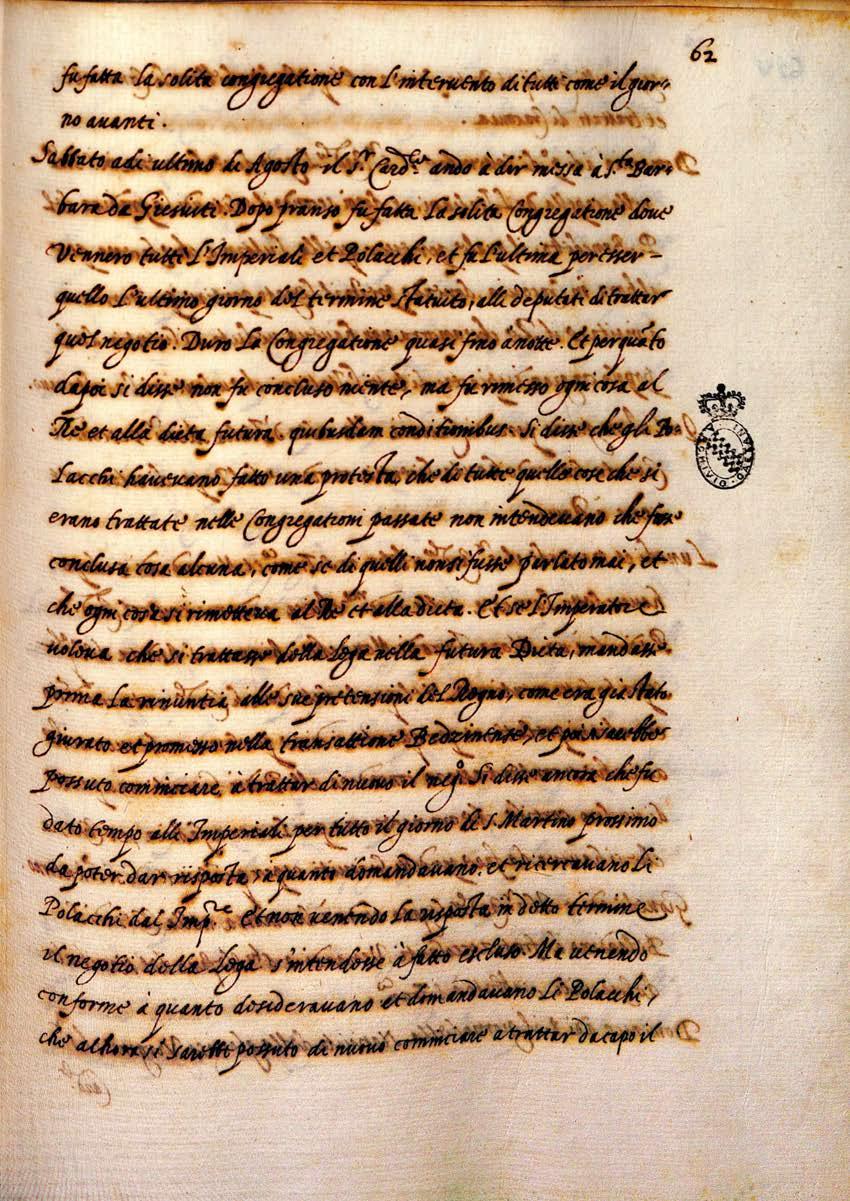 62
fu fatta la solita congregatione con l'intervento di tutti come il gior-
no avanti.
Sabbato adi ultimo di Agosto il S.r Card.le andò à dir messa à S.ta Bar-
bara da Giesuiti. Dopo pranso fu fatta la solita Congregatione dove
vennero tutti l'Imperiali et Polacchi, et fu l'ultima per esser-
quello l'ultimo giorno del termine statuito, alli deputati di trattar
quel negotio. Duro la Congregatione quasi fino à notte. Et per quāto
dapoi si disse non fu concluso niente, ma fu rimesso ogni cosa al
Re et alla dieta futura quibusdam conditionibus. Si disse che gli Po-
lacchi havevano fatto una protesta, che di tutte quelle cose che si
erano trattate nelle Congregationi passate non intendevano che fusse
conclusa cosa alcuna, come se di quelli non si fusse parlato mai, et
che ogni cosa si rimetteva al Re et alla dieta. Et se l'Imperatore
voleva che si trattasse della Lega nella futura Dieta, mandasse
prima la rinuntia alle sue pretensioni del Regno, come era gia stato
giurato et promesso nella transattione Bedzinense, et poi si sarebbe
possuto cominciare à trattar di nuovo il neg.o Si disse ancora che fu
dato tempo alli Imperiali per tutto il giorno di S. Martino prossimo
da poter dar risposta, a quanto domandavano, et ricercavano li
Polacchi dal Imp.re Et non venendo la risposta in detto termine
il negotio della Lega s'intendesse à fatto escluso. Ma venendo
conforme à quanto desideravano et domandavano li Polacchi,
che alhora si sarebbe possuto di nuovo cominciare a trattar da capo il
ARCHIVIO